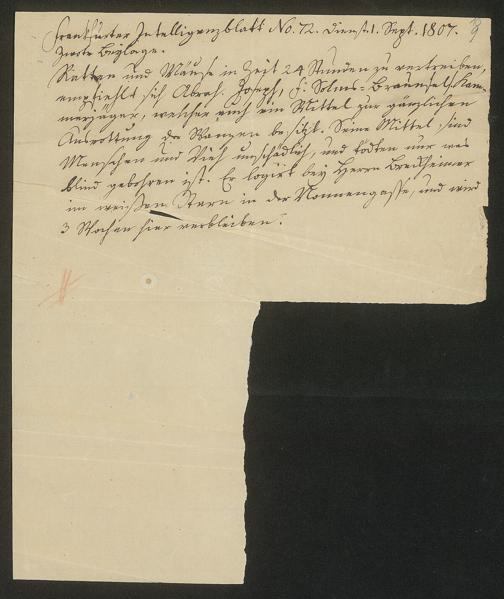 Frankfurter Intelligenzblatt No. 72. Dienst. 1. Sept. 1807.
Zwote Beylage.
Ratten und Mäuse in Zeit 24 Stunden zu vertreiben,
empfiehlt sich Abrah. Joseph, F. Solms-Braunfels. Kam-
merjäger, welcher auch ein Mittel zur gänzlichen
Ausrottung der Wanzen besitzt. Seine Mittel sind
Menschen und Vieh unschädlich, und tödten nur was
blind gebohren ist. Er logirt bey Herrn Breidheimer
im weissen Stern in der Nonnengasse, und wird
3 Wochen hier verbleiben.